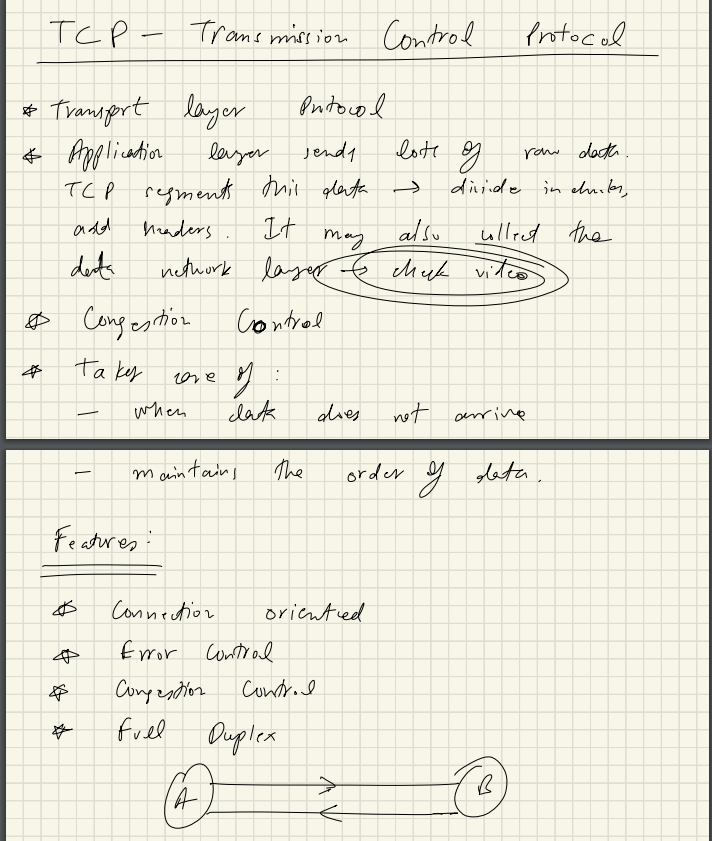 TCP - Transmission Control Protocol
* Transport layer Protocol
* Application layer sends lots of raw data.
TCP segments this data → divide in chunks,
add headers. It may also collect the
data network layer → check video
* Congestion Control
* Takes care of :
- when data does not arrive
- maintains the order of data.
Features:
* Connection oriented
* Error Control
* Congestion Control
* Full Duplex
A B